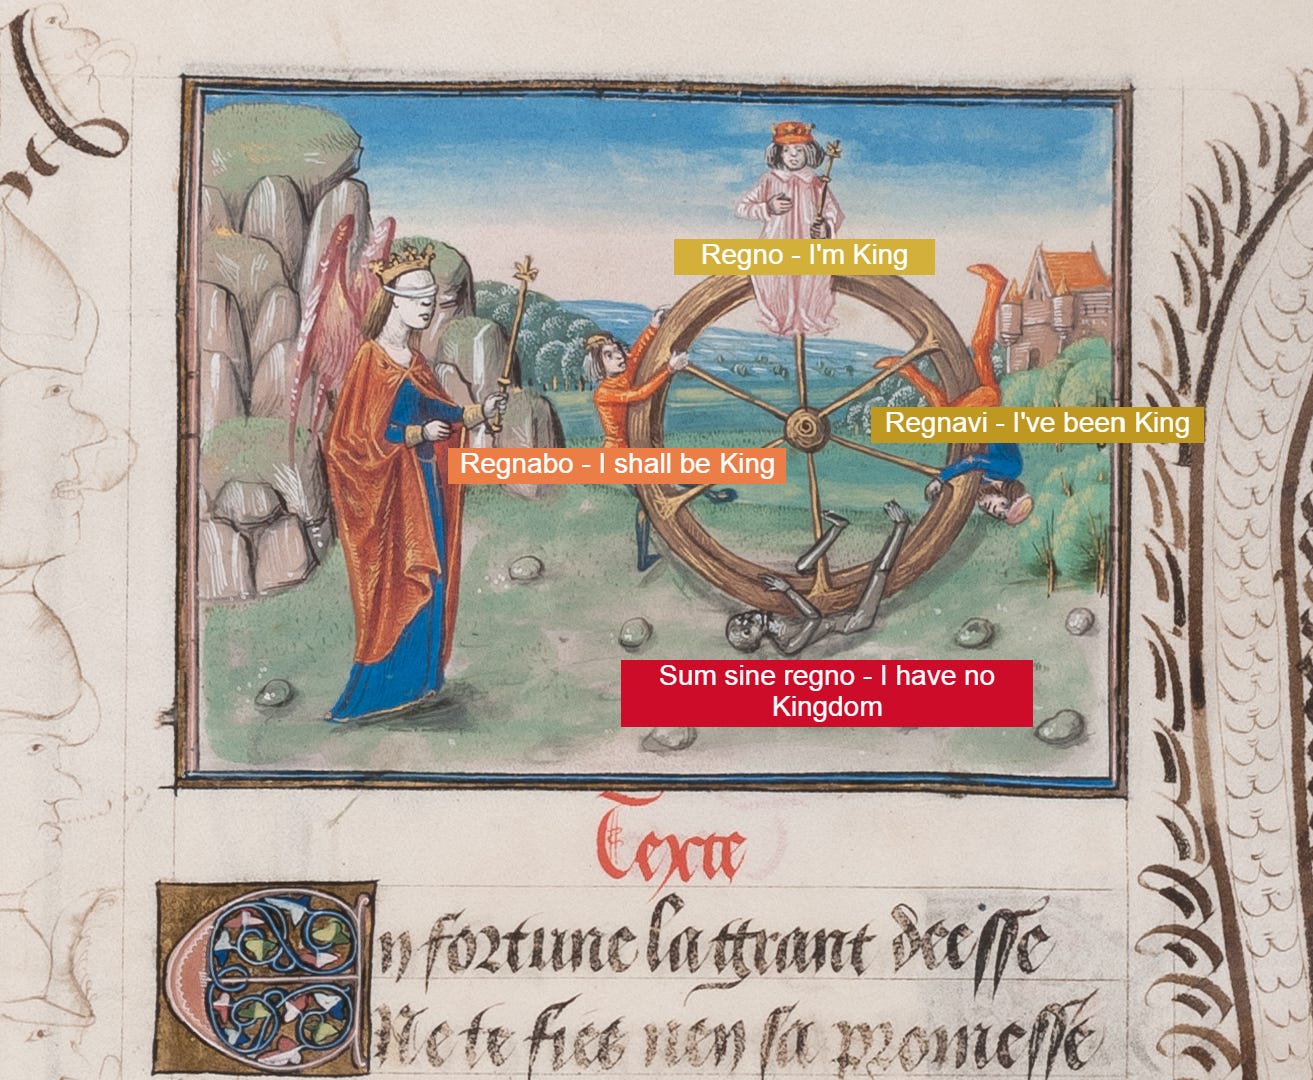 Regno - I'm King
Regnavi - I've been King
Regnabo - I shall be King
Sum sine regno - I have no
Kingdom
Texte
En fortune la grant deesse
Ne te fies n'en sa promesse